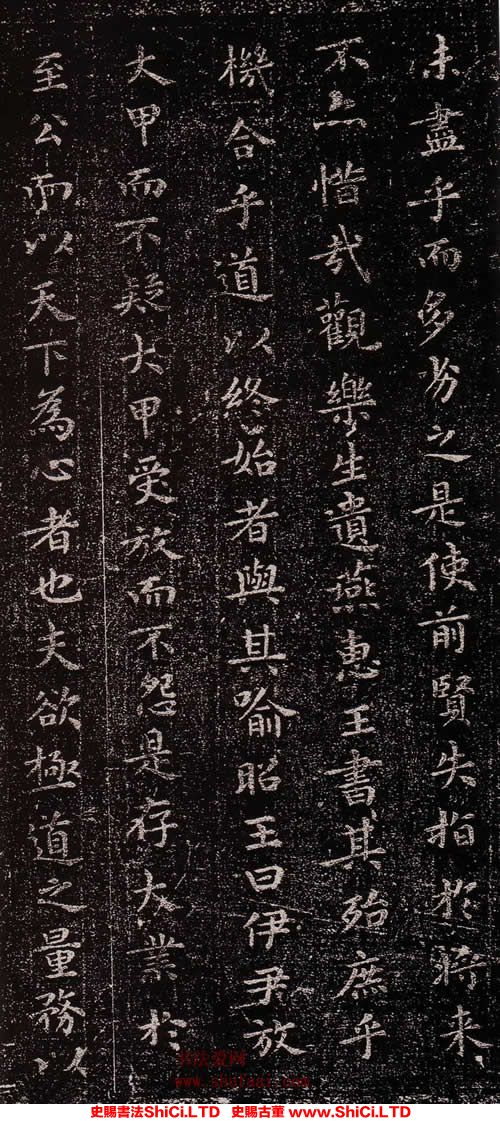 未盡乎而多劣之是使前賢失指於將来
不亦惜哉觀樂生遺燕惠王書其殆庶乎
機合乎道以終始者與其喻昭王曰伊尹放
大甲而不疑大甲受放而不怨是存大業於
至公而以天下為心者也夫欲極道之量務以
史賜書法ShiCi.LTD 史賜古董 www.ShiCi.LTD